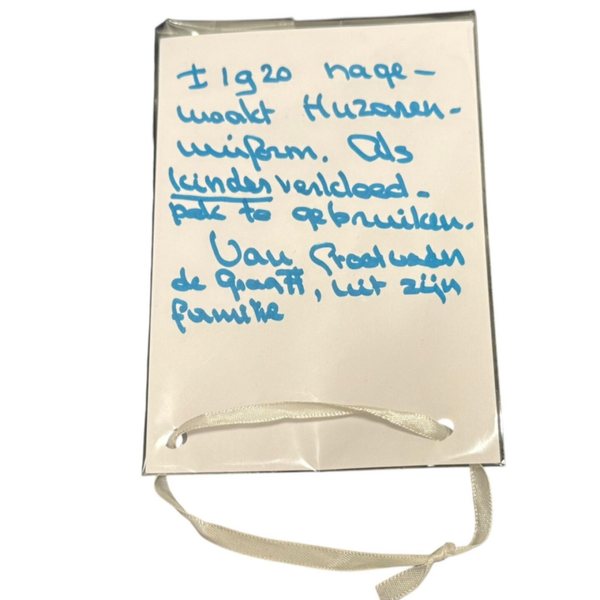 ± 1920 nage-
maakt Huzaren-
uniform. Als
kinderverkleed-
pak te gebruiken.
Van Grootvader
de Graaff, uit zijn
familie